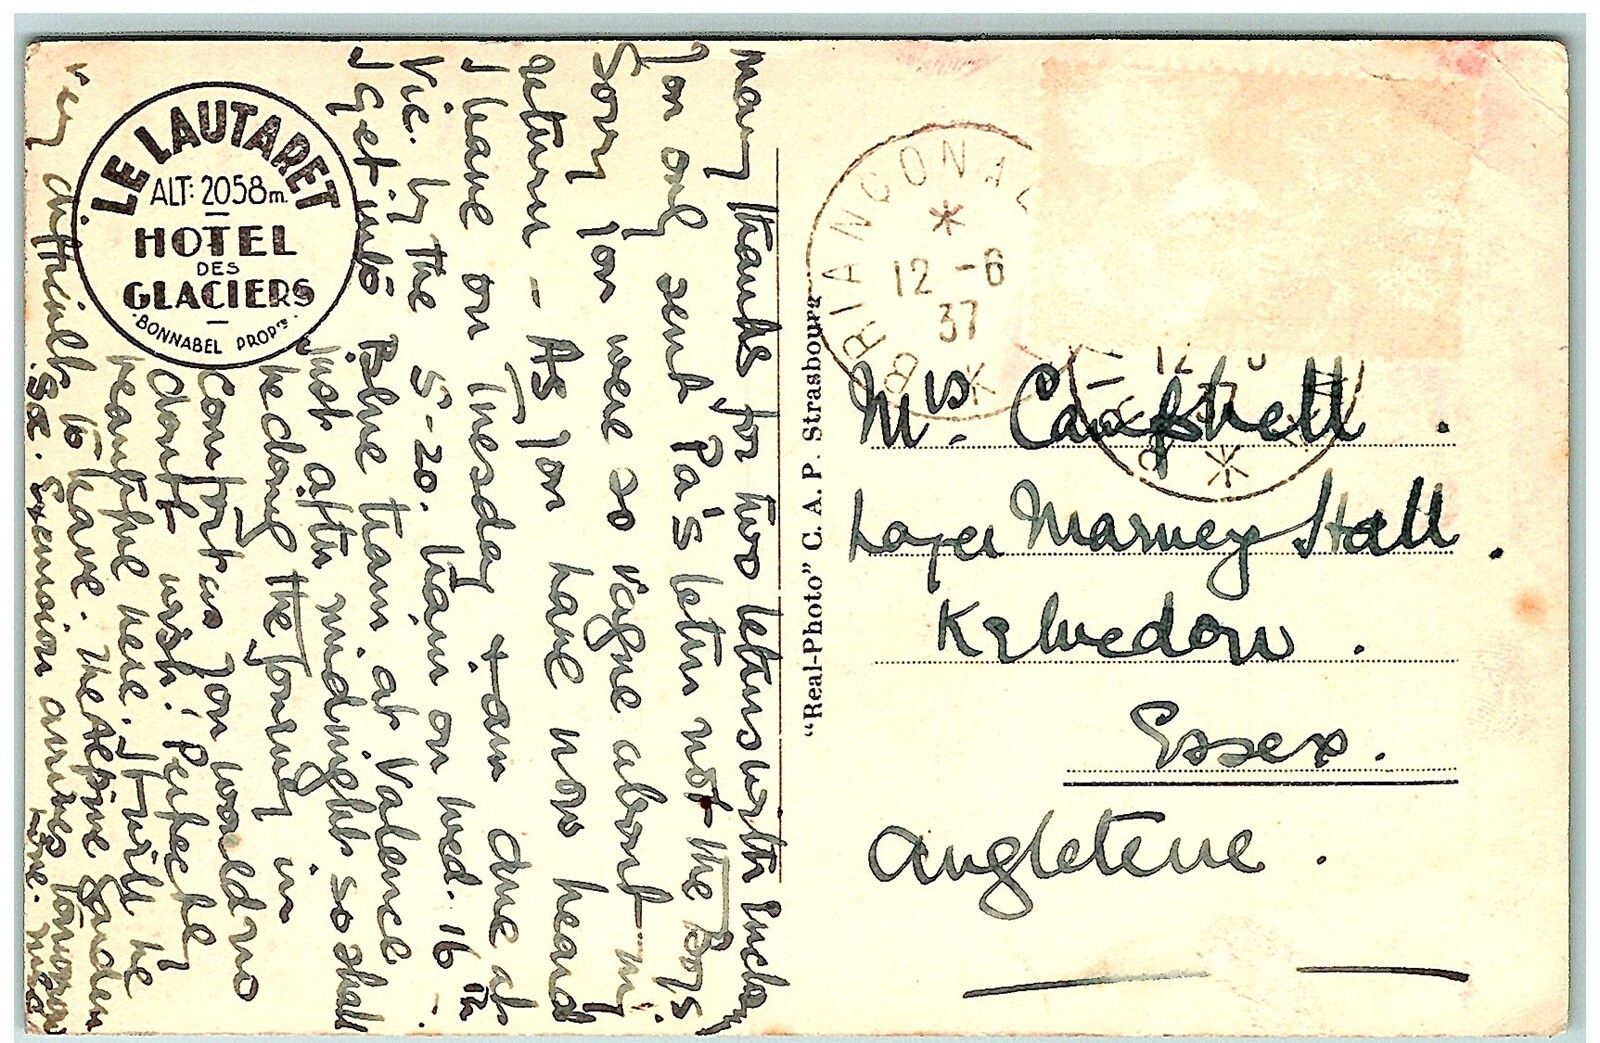 LE LAUTARET
ALT: 2058m.
HOTEL
DES
GLACIERS
BONNABEL PROPRE
many thanks for two letters with
you only sent Pa's letter not the Boys'
Sorry you were so vague about my
return - As you have now heard
I leave on Tuesday + am due at
Vic. by the 5-20. train on Wed. 16th -
I get into Blue train at Valence
just after midnight so shall
be doing the Journey in
Comfort as you would so
don't wish! Perfectly
beautiful here. I will be
very difficult to leave. The Alpine Garden
Excursion arrives tomorrow
"Real-Photo" C. A. P. Strasbourg
BRIANCON A
12 -6
37
Mrs. Campbell.
Layer Marney Hall.
Kelvedon.
Essex.
Angleterre.